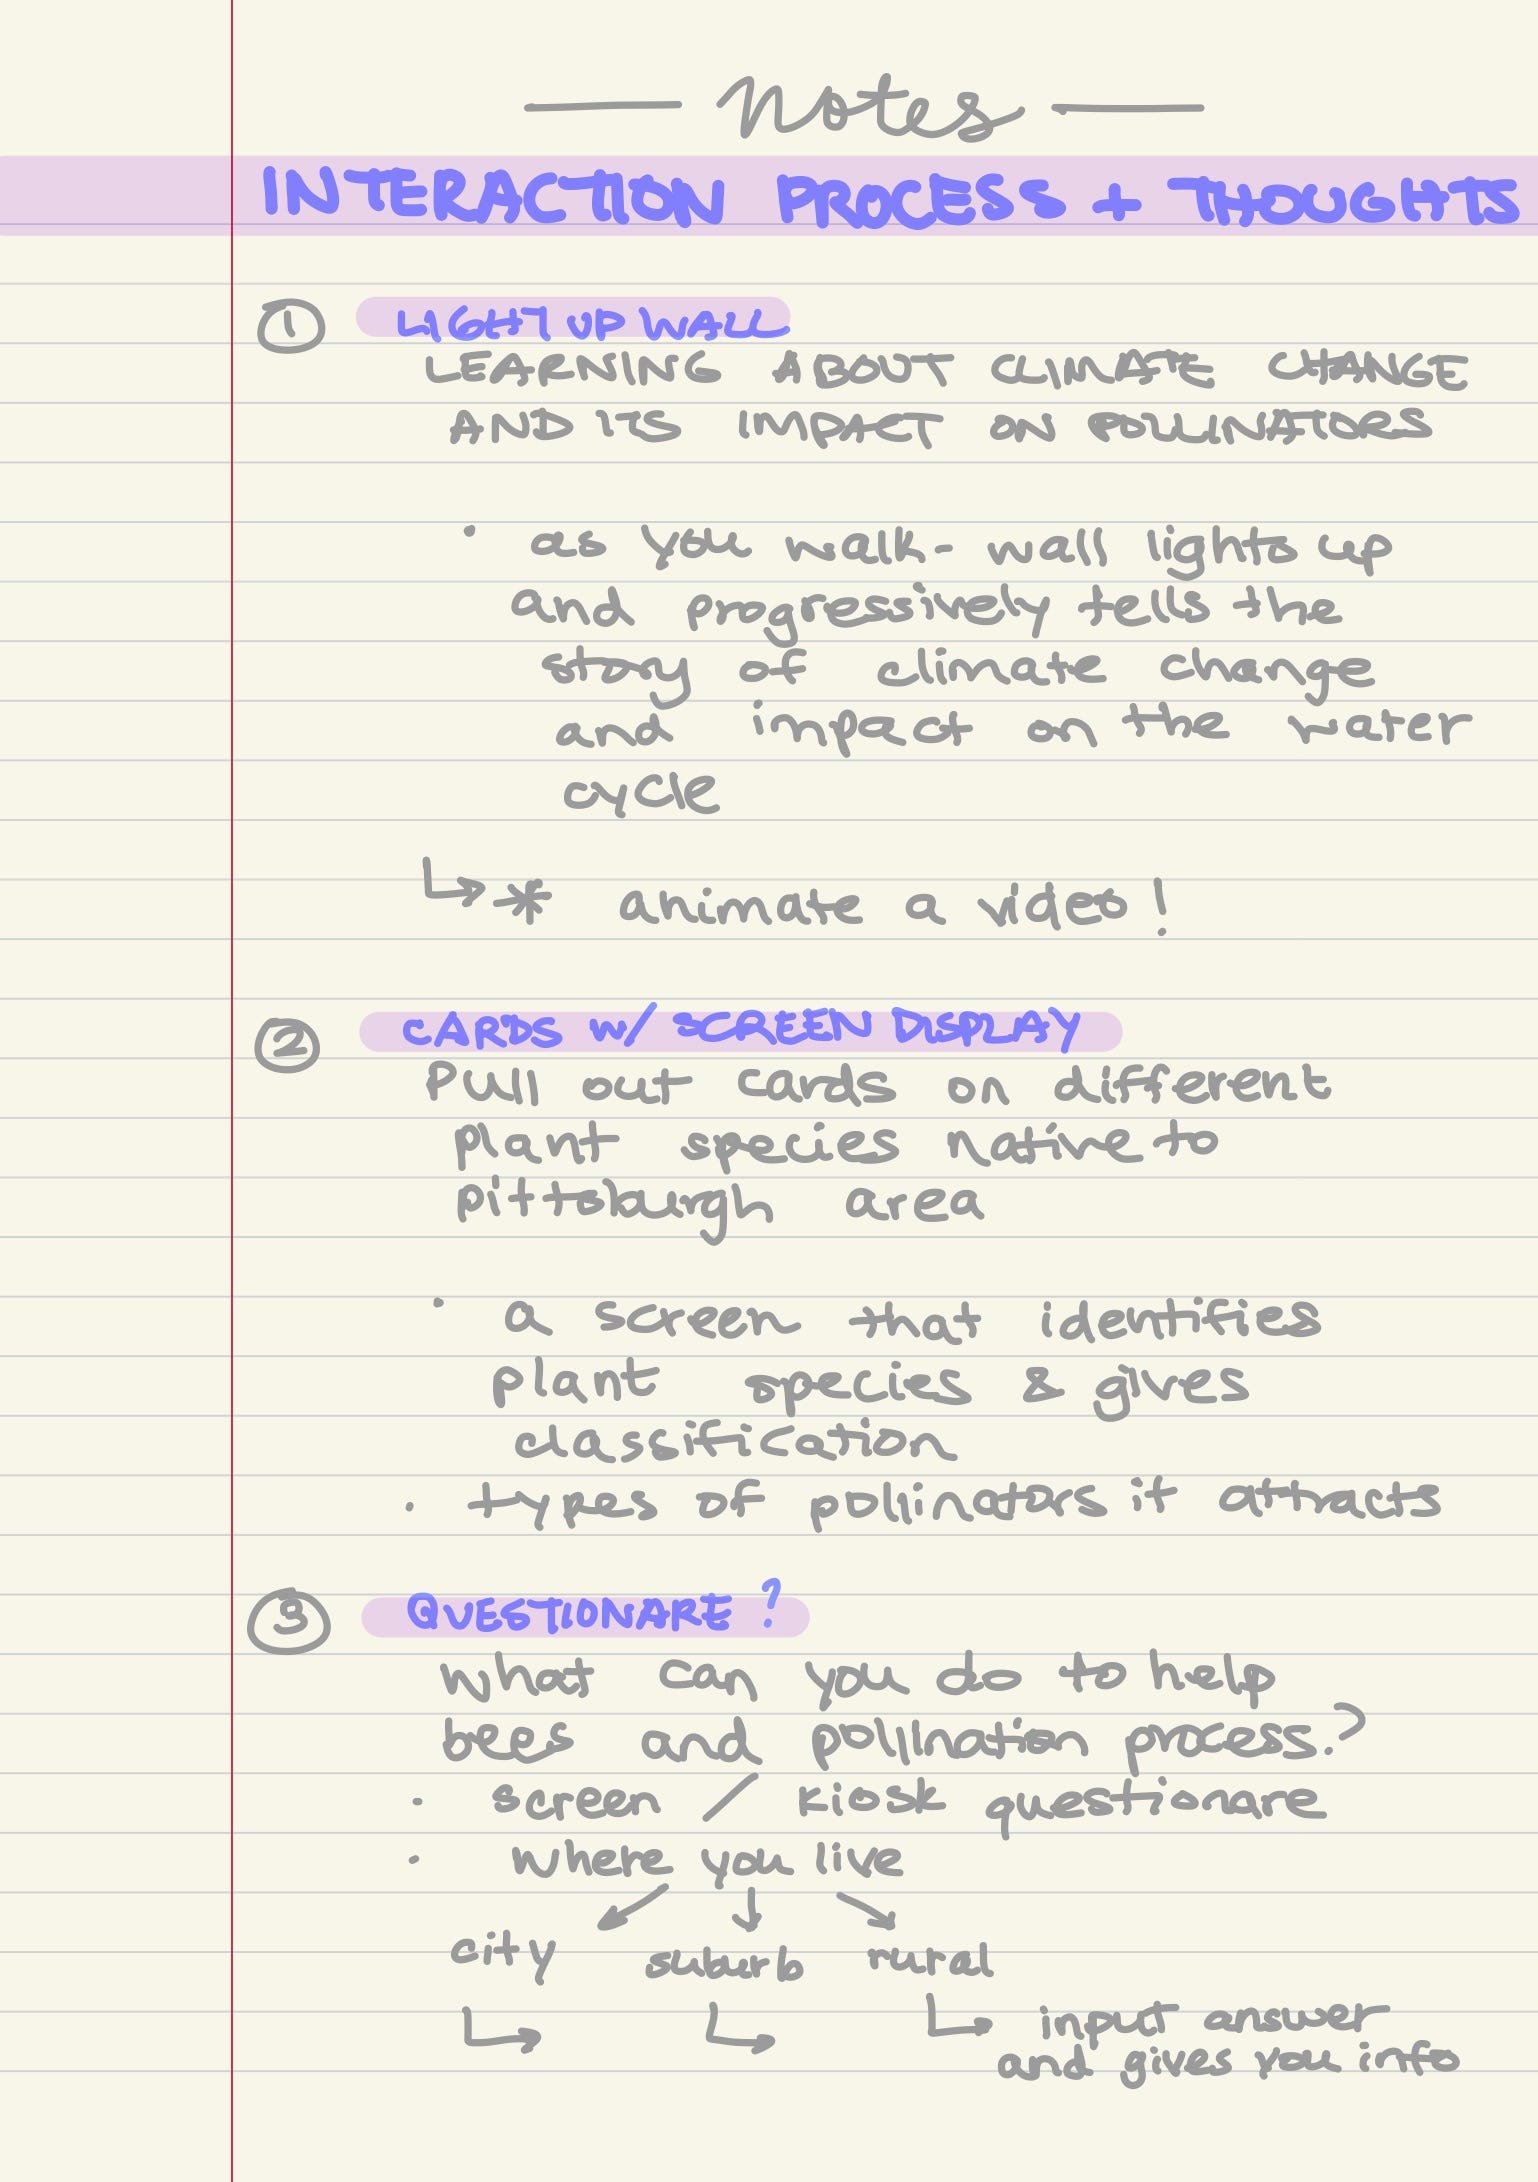 — notes —
INTERACTION PROCESS + THOUGHTS
① LIGHT UP WALL
LEARNING ABOUT CLIMATE CHANGE
AND ITS IMPACT ON POLLINATORS
· as you walk - wall lights up
and progressively tells the
story of climate change
and impact on the water
cycle
↳ * animate a video!
② CARDS w/ SCREEN DISPLAY
Pull out cards on different
plant species native to
pittsburgh area
· a screen that identifies
plant species & gives
classification
· types of pollinators it attracts
③ QUESTIONARE?
What can you do to help
bees and pollination process?
· screen / kiosk questionare
· where you live
↙ ↓ ↘
city suburb rural
↳ ↳ ↳ input answer
and gives you info